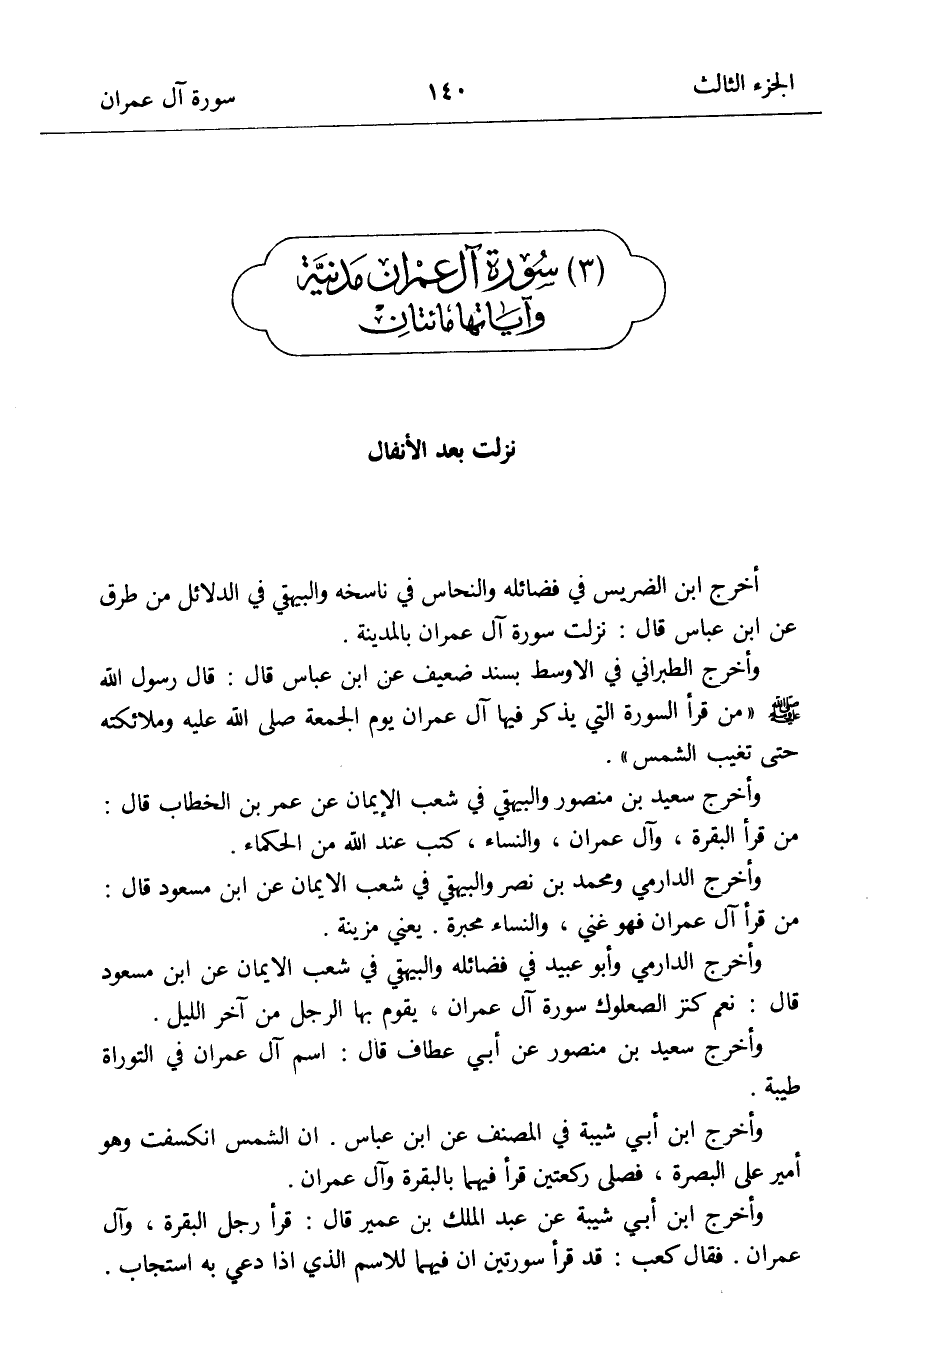 الجزء الثالث
١٤٠
سورة آل عمران
(٣) سُورَة آل عِمْرَان مَدَنِيَّة
وَآيَاتُهَا مائتَانِ
نزلت بعد الأنفال
أخرج ابن الضريس في فضائله والنحاس في ناسخه والبيهقي في الدلائل من طرق
عن ابن عباس قال : نزلت سورة آل عمران بالمدينة .
وأخرج الطبراني في الاوسط بسند ضعيف عن ابن عباس قال : قال رسول الله
ﷺ «من قرأ السورة التي يذكر فيها آل عمران يوم الجمعة صلى الله عليه وملائكته
حتى تغيب الشمس» .
وأخرج سعيد بن منصور والبيهقي في شعب الإيمان عن عمر بن الخطاب قال :
من قرأ البقرة ، وآل عمران ، والنساء ، كتب عند الله من الحكماء .
وأخرج الدارمي ومحمد بن نصر والبيهقي في شعب الايمان عن ابن مسعود قال :
من قرأ آل عمران فهو غني ، والنساء محبرة . يعني مزينة .
وأخرج الدارمي وأبو عبيد في فضائله والبيهقي في شعب الايمان عن ابن مسعود
قال : نعم كنز الصعلوك سورة آل عمران ، يقوم بها الرجل من آخر الليل .
وأخرج سعيد بن منصور عن أبي عطاف قال : اسم آل عمران في التوراة
طيبة .
وأخرج ابن أبي شيبة في المصنف عن ابن عباس . ان الشمس انكسفت وهو
أمير على البصرة ، فصلى ركعتين قرأ فيهما بالبقرة وآل عمران .
وأخرج ابن أبي شيبة عن عبد الملك بن عمير قال : قرأ رجل البقرة ، وآل
عمران . فقال كعب : قد قرأ سورتين ان فيهما للاسم الذي اذا دعي به استجاب .